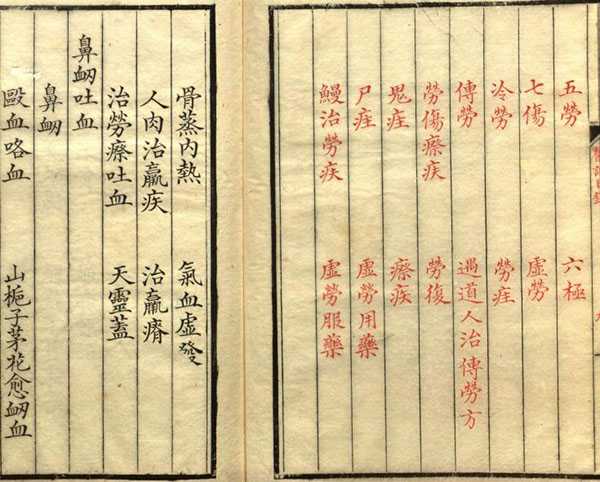 五勞 六極
七傷 虛勞
冷勞 勞疰
傳勞 遇道人治傳勞方
勞傷瘵疾 勞復
鬼疰 瘵疾
尸疰 虛勞用藥
鰻治勞疾 虛勞服藥
骨蒸內熱 氣血虛發
人肉治羸疾 治羸瘠
治勞瘵吐血 天靈蓋
鼻衄吐血
鼻衄
毆血咯血 山梔子茅花愈衄血